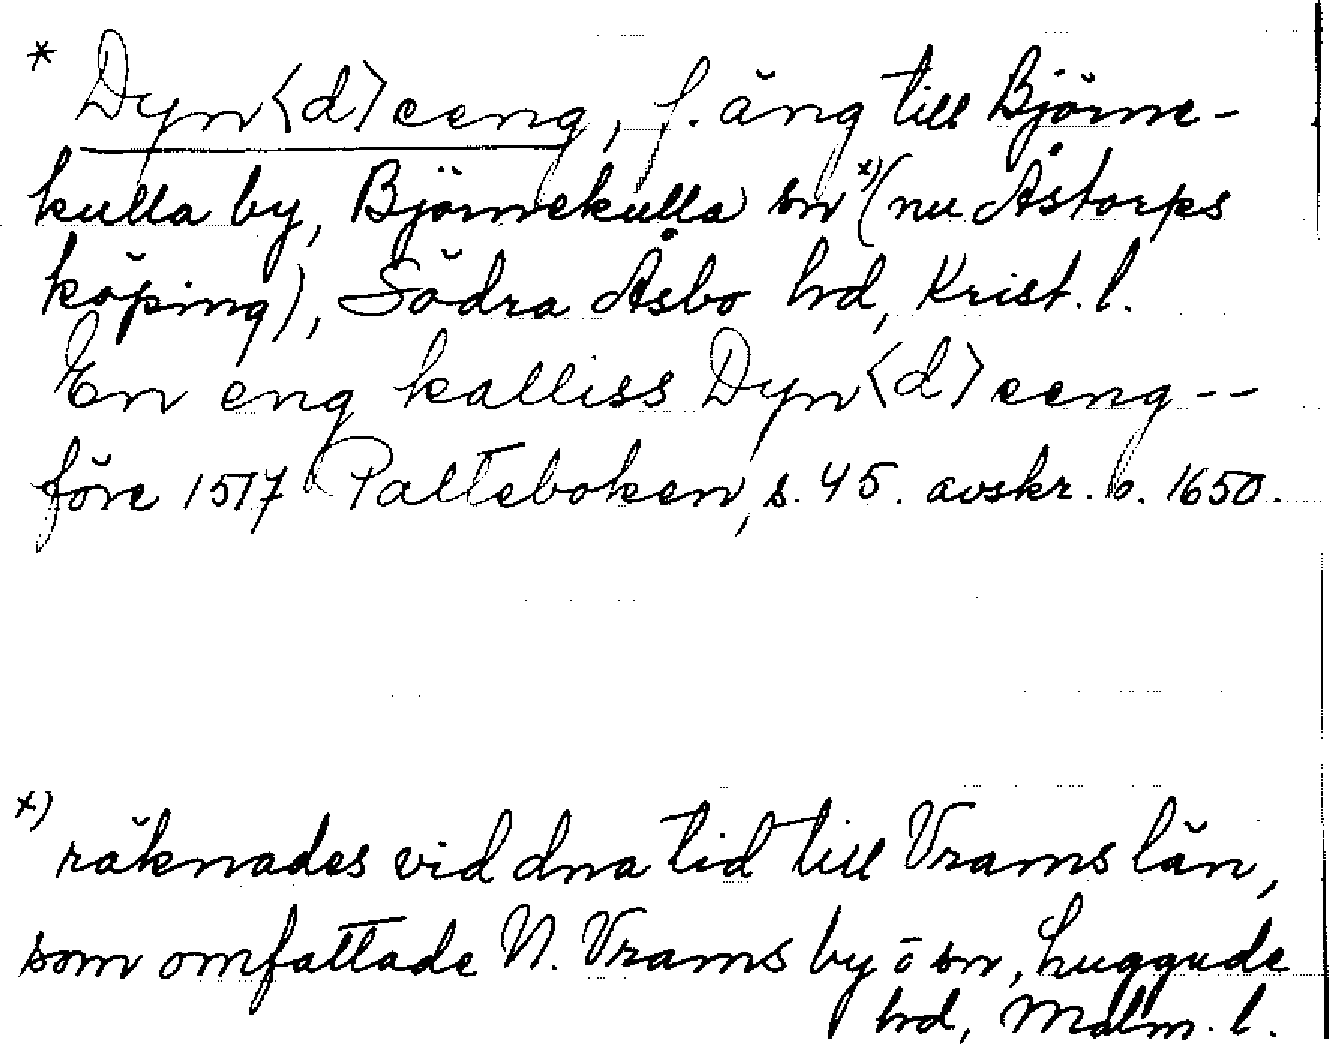 * Dyn<d>eeng, f. äng till Björne-
kulla by, Björnekulla sn x) (nu Åstorps
köping), Södra Åsbo hd, Krist. l.
En eng kalliss Dyn<d>eeng --
före 1517 Palteboken, s. 45. avskr. b. 1650.
x) räknades vid dna tid till Vrams län,
som omfattade N. Vrams by o sn, Luggude
hd, Malm. l.